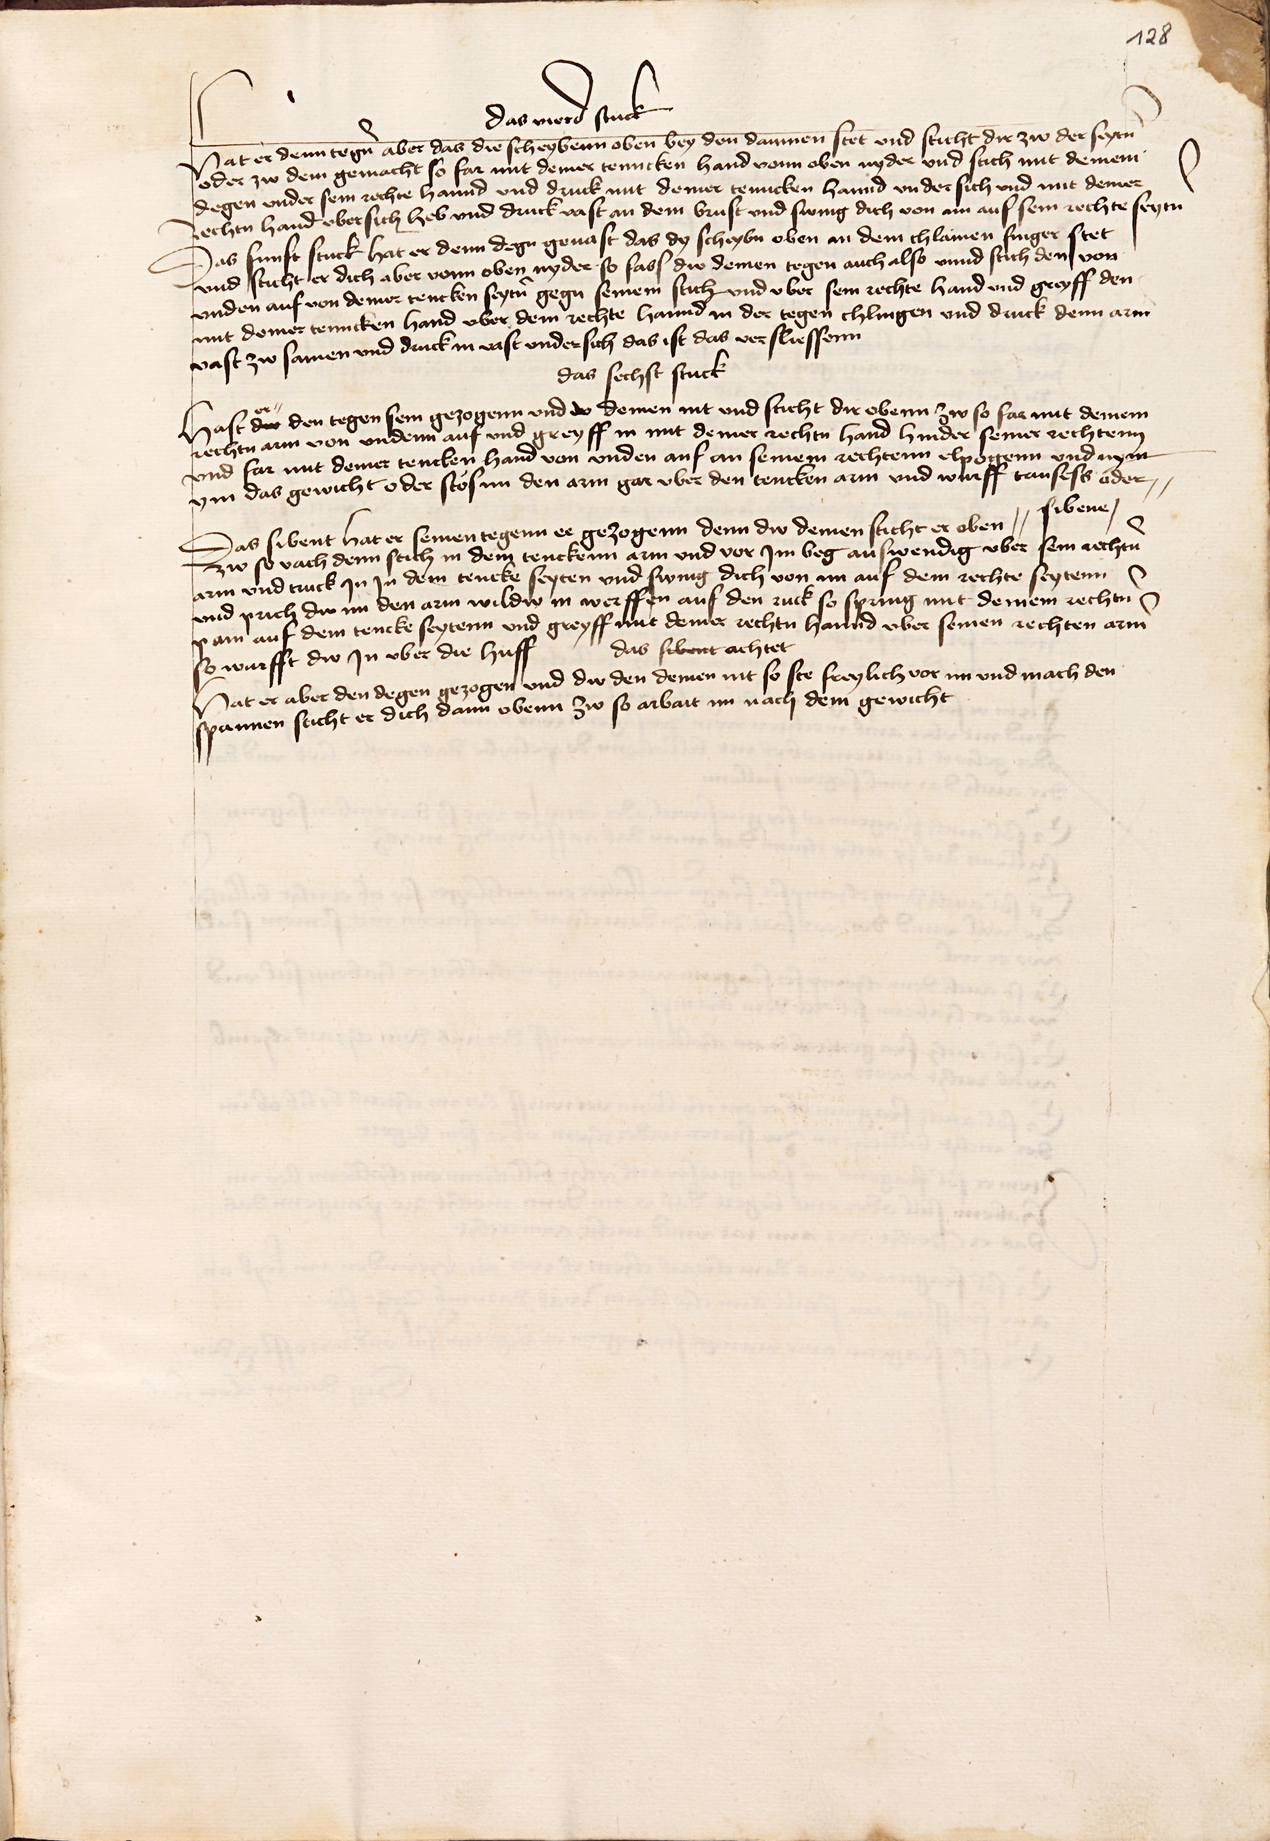 128
das vierd stuck
Hat er denn tegn̄ aber das die scheybenn oben bey den daumen stet und sticht dir zw der seytn̄
oder zw dem gemacht so far mit deiner tenncken hand vonn oben nyder und stich mit deinem
degen under sein rechte hannd und druck mit deiner tenncken hannd undersich und mit deiner
rechtn hand ubersich heb und druck vast an dein brust und swing dich von im auf sein rechte seytn
Das funft stuck hat er denn degn gevast das dy scheybn oben an dem chlainen finger stet
und sticht er dich aber vonn oben nyder so fass dw deinen tegen auch also unnd stich den von
unden auf von deiner tencken seytn̄ gegn seinem stich und uber sein rechte hand und greyff den
mit deiner tenncken hand uber dein rechte hannd in der tegen chlingen und druck denn arm
vast zw samen und druck in vast undersich das ist das versliessenn
das sechst stuck
er
Hast dw den tegen sein gezogenn und dw deinen nit und sticht dir obenn zw so far mit deinem
rechtn arm von undenn auf und greyff in mit deiner rechtn hand hinder seiner rechtenn
und far mit deiner tencken hand von unden auf an seinem rechtenn elpogenn und nym
ym das gewicht oder stos im den arm gar uber den tencken arm und wurff tausess oder //
Das sibent hat er seinen tegenn ee gezogenn denn dw deinen sticht er oben // sibene /
zw so vach denn stich in dein tenckenn arm und vor im beg auswendig uber sein rechtn̄
arm und truck in in dein tencke seyten und swing dich von im auf dein rechte seytenn
und prich dw im den arm wildw in werffen auf den ruck so spring mit deinem rechtn
pain auf dein tencke seytenn und greyff mit deiner rechtn hannd uber seinen rechten arm
so wurfft dw in uber die huff
das sibent achtet
Hat er aber den degen gezogen und dw den deinen nit so ste freylich vor im und mach den
spannen sticht er dich dann obenn zw so arbait im nach dem gewicht